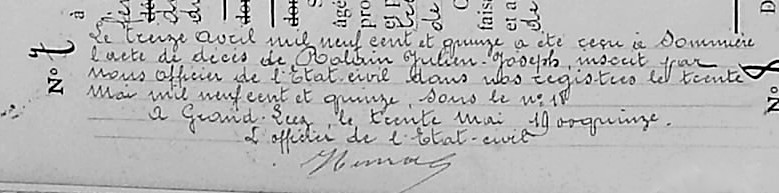 Le treize avril mil neuf cent et quinze a été reçu à Sommière
l'acte de décès de Rolain Julien-Joseph, inscrit par
nous officier de l'Etat-civil dans nos registres le trente
Mai mil neuf cent et quinze, sous le n° 18
A Grand-Leez, le trente Mai 19 quinze.
L'officier de l'Etat-civil
N° 7
à
N° 8